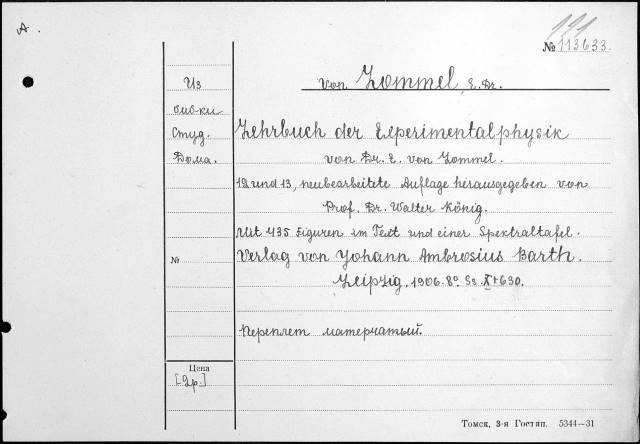 A.
111
№ 113633.
von Lommel, E. Dr.
Из
биб-ки
Студ.
Дома.
Lehrbuch der Experimentalphysik
von Dr. E. von Lommel.
12 und 13, neubearbeitete Auflage herausgegeben von
Prof. Dr. Walter König.
Mit 435 Figuren im Text und einer Spektraltafel.
№ Verlag von Johann Ambrosius Barth.
Leipzig. 1906. 8º. Ss. X+630.
Переплет матерчатый.
Цена
[2р.]
Томск, 3-я Гостип. 5344—31